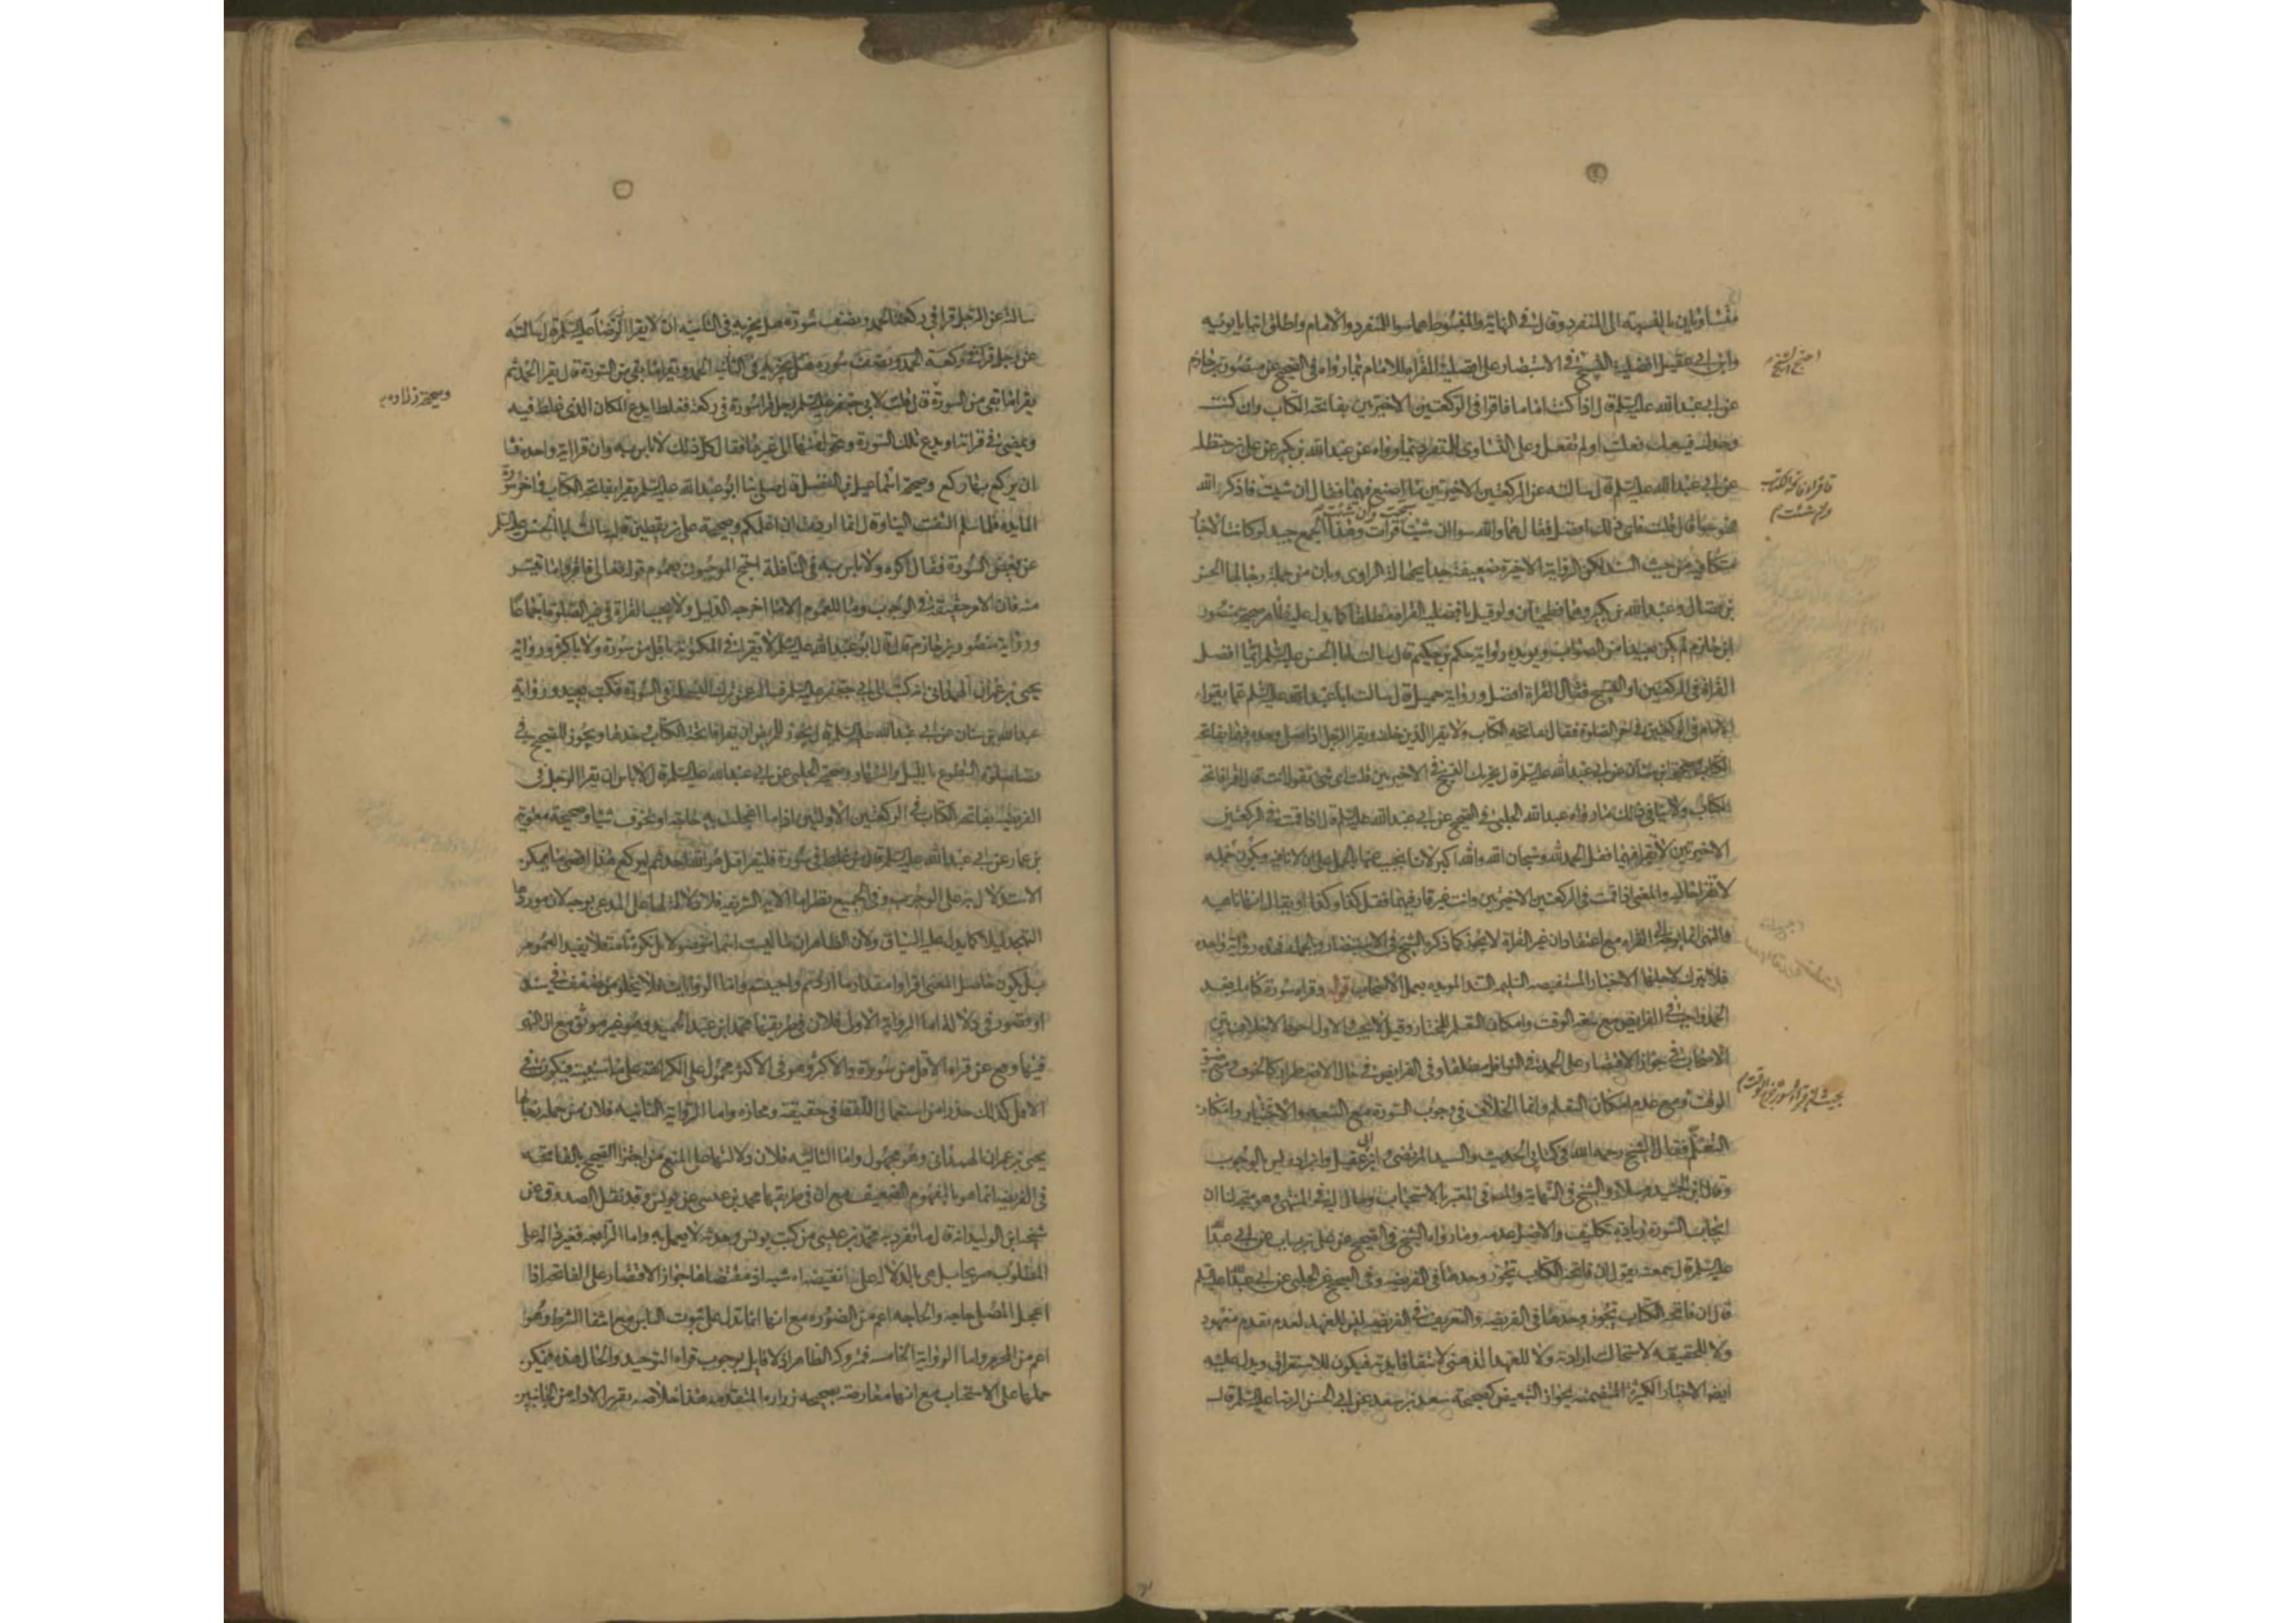 متساويان بالنسبة الى المنفرد وقال في النهاية والمبسوط هما سوا للمنفرد والامام واطلق ابنا بابويه
وابن ابي عقيل افضلية التسبيح في الاستبصار على افضلية القراه للامام بما رواه في الصحيح عن منصور بن حازم
احتج الشيخ
عن ابي عبد الله عليه السلم قال اذا كنت اماما فاقرا في الركعتين الاخيرتين بفاتحة الكتاب وان كنت
وحدك فيسعك فعلت او لم تفعل وعلى التساوى للمنفرد بما رواه عن عبد الله بن بكير عن علي بن حنظله
عن ابي عبد الله عليه السلم قال سالته عن الركعتين الاخيرتين ما اصنع فيهما فقال ان شيت فاذكر الله
فاقراء فاتحة الكتاب
وان شئت
فهو سوا قال قلت فاى ذلك افضل فقال هما والله سوا ان شيت سبحت وان شئت قرات وهذا الجمع جيد لو كانت الاخبار
متكافيه من حيث السند لكن الرواية الاخيرة ضعيفة جدا بجهالة الراوى وبان من جملة رجالها الحسن
بن فضال وعبد الله بن بكير وهما فطحيان ولو قيل بافضلية القراه مطلقا كما يدل عليه ظاهر صحيحة منصور
ابن حازم لم يكن بعيدا من الصواب ويويده رواية حكم بن حكيم قال سالت ابا الحسن عليه السلم ايما افضل
القراة في الركعتين او التسبيح فقال القراة افضل ورواية جميل قال سالت ابا عبد الله عليه السلم عما يقرا
الامام في الركعتين في اخر الصلوة فقال بفاتحة الكتاب ولا يقرا الذين خلفه ويقرا الرجل اذا صلى وحده فيهما بفاتحة
الكتاب وصحيحة ابن سنان عن ابي عبد الله عليه السلم قال يجزيك التسبيح في الاخيرتين قلت اى شي تقول انت قال اقرا فاتحة
الكتاب ولا ينافي ذلك ما رواه عبيد الله الحلبي في الصحيح عن ابي عبد الله عليه السلم قال اذا قمت في الركعتين
الاخيرتين لا تقرا فيهما فقل الحمد لله وسبحان الله والله اكبر لانا نجيب عنها بالحمل على ان لا نافيه وتكون جملة
لا تقرا حاليه والمعنى اذا قمت في الركعتين الاخيرتين وانت غير قار فيهما فقل كذا وكذا او يقال انها ناهيه
والنهي انما توجه الى القراه مع اعتقاد ان غير القراة لا يجوز كما ذكره الشيخ في الاستبصار وبالجمله فهذه رواية واحده
فلا تترك لاجلها الاخبار المستفيضه السليمه السند المويده بعمل الاصحاب قوله وقراه سورة كاملة بعد
الحمد واجب في الفرايض مع سعه الوقت وامكان التعلم للمختار وقيل لا يجب والاول احوط لا خلاف بين
الاصحاب في جواز الاقتصار على الحمد في النوافل مطلقا وفي الفرايض في حال الاضطرار كالخوف ومع ضيق
الوقت ومع عدم امكان التعلم وانما الخلاف في وجوب السورة مع السعه والاختيار وامكان
بحيث لم قراءة السورة خرج الوقت
التعلم فقال الشيخ رحمه الله في كتابي الحديث والسيد المرتضى وابن ابي عقيل وابن ادريس بالوجوب
وقال ابن الجنيد وسلار والشيخ في النهاية والمص في المعتبر بالاستحباب ومال اليه في المنتهى وهو متجه لنا ان
ايجاب السورة زيادة تكليف والاصل عدمه وما رواه الشيخ في الصحيح عن علي بن رياب عن ابي عبد الله
عليه السلم قال سمعته يقول ان فاتحة الكتاب تجوز وحدها في الفريضه وفي الصحيح عن الحلبي عن ابي عبد الله عليه السلم
قال ان فاتحة الكتاب تجوز وحدها في الفريضه والتعريف في الفريضه ليس للعهد لعدم تقدم معهود
ولا للحقيقه لاستحالة ارادته ولا للعهد الذهني لانتفا فايدته فيكون للاستغراق ويدل عليه
ايضا الاخبار الكثيرة المتضمنه لجواز التبعيض كصحيحة سعد بن سعد عن ابي الحسن الرضا عليه السلم قال
سالته عن الرجل قرا في ركعة الحمد ونصف سورة هل يجزيه في الثانيه ان لا يقرا الحمد
عن رجل قرا في ركعة الحمد ونصف سوره هل يجزيه في الثانيه الحمد ويقرا ما بقي من السورة قال يقرا الحمد ثم
يقرا ما بقي من السورة قال قلت لابي جعفر عليه السلم رجل قرا سورة في ركعة فغلط ايدع المكان الذى غلط فيه
وصحيحة زراره
ويمضى في قراته او يدع تلك السورة ويتحول منها الى غيرها فقال كل ذلك لا باس به وان قرا اية واحده فشا
ان يركع بها ركع وصحيحة اسماعيل بن الفضل قال صلى بنا ابو عبد الله عليه السلم فقرا بفاتحة الكتاب واخر سورة
المايده فلما سلم التفت الينا وقال انما اردت ان اعلمكم وصحيحة علي بن يقطين قال سالت ابا الحسن عليه السلم
عن تبعيض السورة فقال اكره ولا باس به في النافلة احتج الموجبون بعموم قوله تعالى فاقروا ما تيسر
منه فان الامر حقيقة في الوجوب وما للعموم الا ما اخرجه الدليل ولا يجب القراة في غير الصلوة اجماعا
ورواية منصور بن حازم قال قال ابو عبد الله عليه السلم لا تقرا في المكتوبة باقل من سورة ولا باكثر ورواية
يحيى بن عمران الهمداني انه كتب الى ابي جعفر عليه السلم فساله عن ترك البسملة في السورة فكتب يعيد ورواية
عبد الله بن سنان عن ابي عبد الله عليه السلم قال يجوز للمريض ان يقرا فاتحة الكتاب وحدها ويجوز للصحيح في
قضا صلوة التطوع بالليل والنهار وصحيحة الحلبي عن ابي عبد الله عليه السلم قال لا باس ان يقرا الرجل في
الفريضه بفاتحة الكتاب في الركعتين الاولتين اذا ما اعجلت به حاجة او تخوف شيا وصحيحة معويه
بن عمار عن ابي عبد الله عليه السلم قال من غلط في سورة فليقرا قل هو الله احد ثم ليركع هذا اقصى ما يمكن
الاستدلال به على الوجوب وفي الجميع نظر اما الاية الشريفه فلانه لا دلالة لها على المدعى بوجه لان موردها
التهجد ليلا كما يدل عليه السياق ولان الظاهر ان ما ليست اسما موصولا بل نكرة تامة فلا يفيد العموم
بل يكون حاصل المعنى اقراوا مقدار ما اردتم واحببتم واما الروايات فلا يخلو من ضعف في سند
او قصور في دلالة اما الرواية الاولى فلان في طريقها محمد ابن عبد الحميد وهو غير موثق مع ان النهي
فيها وقع عن قراه الاقل من سورة والاكثر وهو في الاكثر محمول على الكراهة على ما سنبينه فيكون في
الاقل كذلك حذرا من استعمال اللفظ في حقيقته ومجازه واما الرواية الثانيه فلان من جملة رجالها
يحيى بن عمران الهمداني وهو مجهول واما الثالثه فلان دلالتها على المنع من اجتزا الصحيح بالفاتحه
في الفريضه انما هو بالمفهوم الضعيف مع ان في طريقها محمد بن عيسى عن يونس وقد نقل الصدوق عن
شيخه ابن الوليد انه قال ما تفرد به محمد بن عيسى من كتب يونس وحديثه لا يعمل به واما الرابعه فغير داله على
المطلوب صريحا بل هي بالدلالة على نقيضه اشبه اذ مقتضاها جواز الاقتصار على الفاتحه اذا
اعجل المصلي حاجه والحاجه اعم من الضروره مع انها انما تدل على ثبوت الباس مع انتفا الشرط وهو
اعم من المحرم واما الرواية الخامسه فمتروكة الظاهر اذ لا قايل بوجوب قراه التوحيد والحال هذه فيمكن
حملها على الاستحباب مع انها معارضه بصحيحه زراره المتقدمه هذا خلاصه تقرير الادله من الجانبين